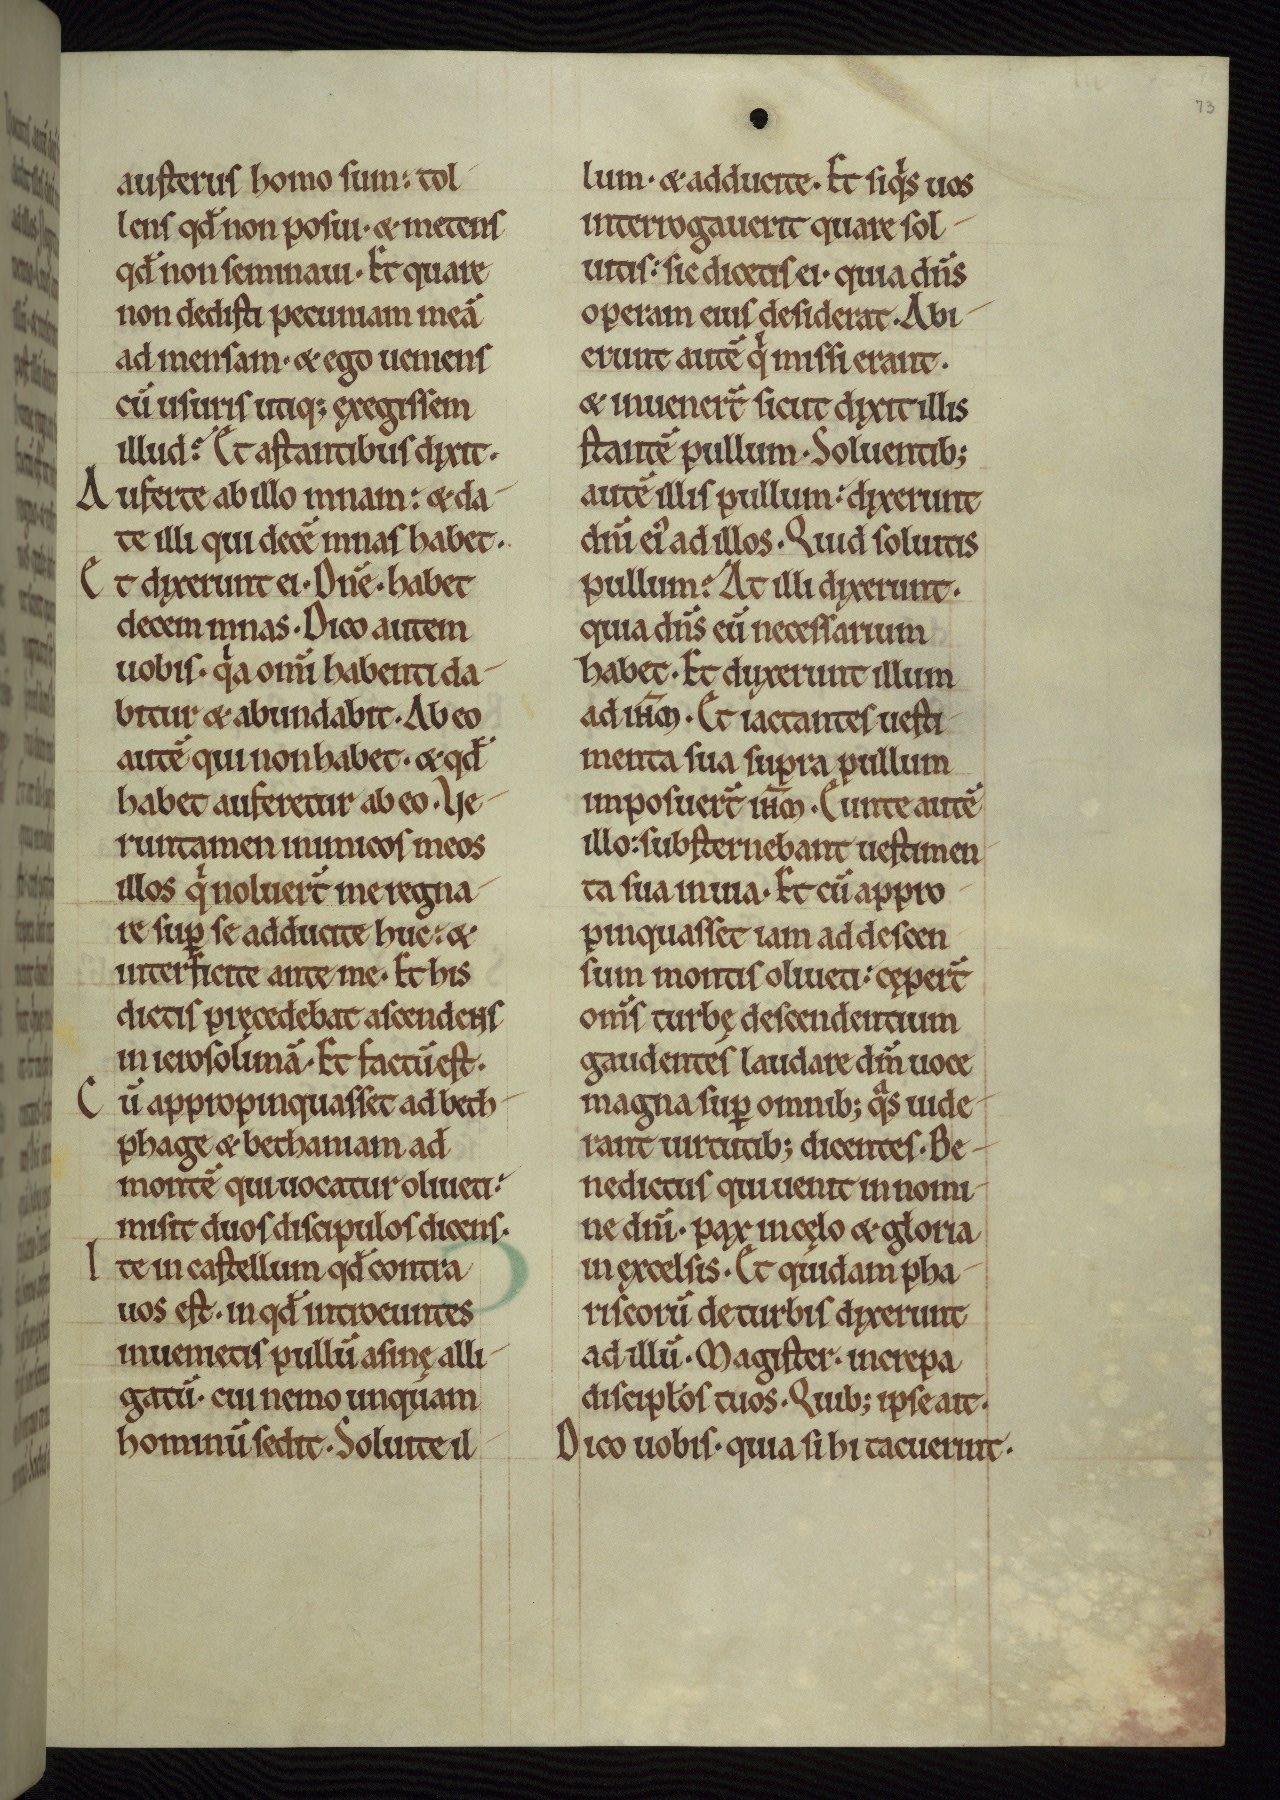 73
austerus homo sum: tol-
lens qđ non posui· & metens
qđ non seminaui· Et quare
non dedisti pecuniam meā
ad mensam· & ego ueniens
cū usuris utiq; exegissem
illud? Et astantibus dixit·
Auferte ab illo mnam: & da-
te illi qui decē mnas habet·
Et dixerunt ei· Dn̄e· habet
decem mnas· Dico autem
uobis· qⁱa om̄i habenti da-
bitur & abundabit· Ab eo
autē qui non habet· & qđ
habet auferetur ab eo· Ue-
runtamen inimicos meos
illos qⁱ noluer̄t me regna-
re suꝑ se adducite huc: &
interficite ante me· Et his
dictis pręcedebat ascendens
in ierosolimā· Et factū est·
Cū appropinquasset ad beth-
phage & bethaniam ad
montē qui uocatur oliueti:
misit duos discipulos dicens·
Ite in castellum qđ contra
uos est· in qđ introeuntes
inuenietis pullū asinę alli-
gatū· cui nemo unquam
hominū sedit· Soluite il-
lum· & adducite· Et siqⁱs uos
interrogauerit quare sol-
uitis: sic dicetis ei· quia dn̄s
operam eius desiderat· Abi-
erunt autē qⁱ missi erant·
& inuener̄t sicut dixit illis
stantē pullum· Soluentib;
autē illis pullum: dixerunt
dn̄i ei' ad illos· Quid soluitis
pullum? At illi dixerunt·
quia dn̄s eū necessarium
habet· Et duxerunt illum
ad ih̄m· Et iactantes uesti-
menta sua supra pullum
imposuer̄t ih̄m· Eunte autē
illo: substernebant uestimen-
ta sua in uia· Et cū appro-
pinquasset iam ad descen
sum montis oliueti: cęper̄t
om̄s turbę descendentium
gaudentes laudare dm̄ uoce
magna suꝑ omnib; qᵃs uide-
rant uirtutib; dicentes· Be-
nedictus qui uenit in nomi-
ne dn̄i· pax in cęlo & gloria
in excelsis· Et quidam pha-
riseorū de turbis dixerunt
ad illū· Magister· increpa
discipłos tuos· Quib; ipse ait·
Dico uobis· quia si hi tacuerint·